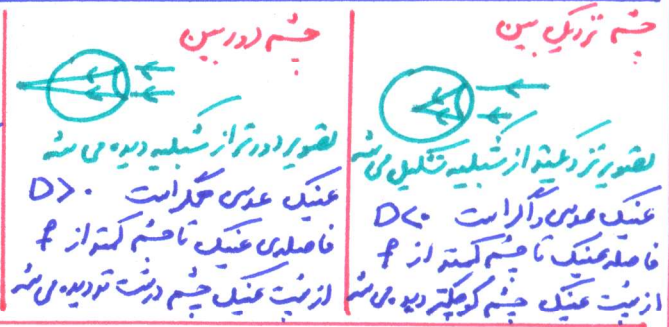 چشم نزدیک بین :
تصویر نزدیکتر از شبکیه تشکیل می شه
عینک عدسی واگرا است D<0
فاصله عینک تا چشم کمتر از f
از پشت عینک چشم کوچکتر دیده می شه
چشم دوربین :
تصویر دورتر از شبکیه دیده می شه
عینک عدسی همگراست D>0
فاصله ی عینک تا چشم کمتر از f
از پشت عینک چشم درشت تر دیده می شه